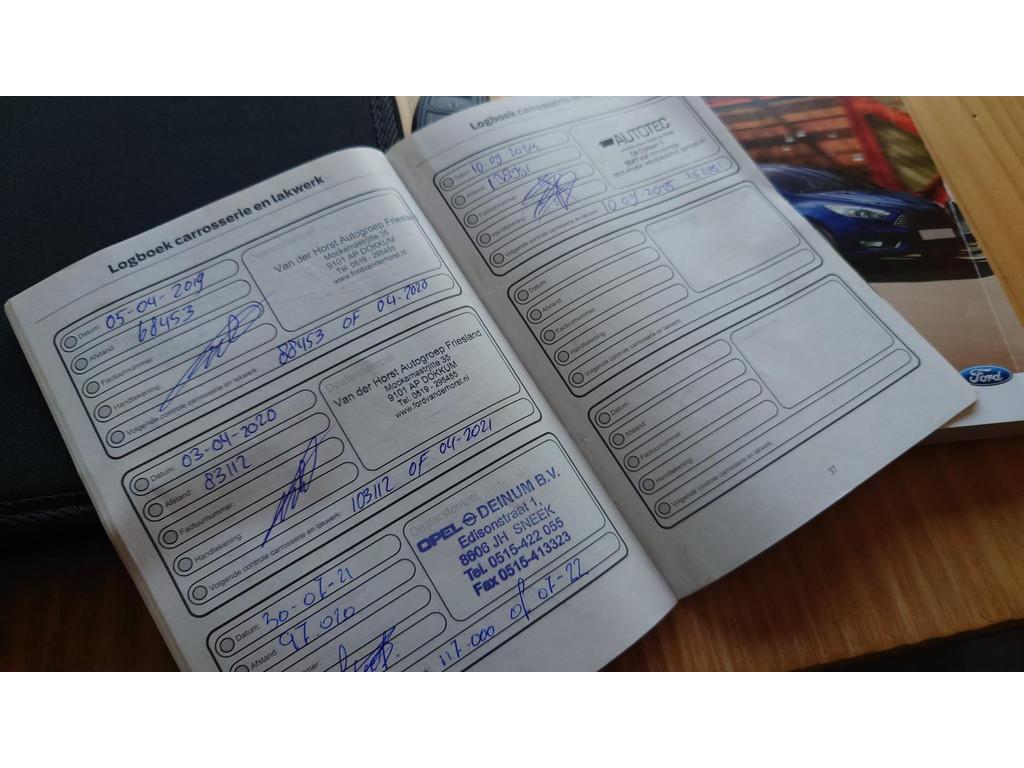 Logboek carrosserie en lakwerk
Datum: 05-04-2019
Afstand: 68453
Factuurnummer:
Handtekening:
Volgende controle carrosserie en lakwerk: 88453 OF 04-2020
Dealerstempel
Van der Horst Autogroep Friesland
Mockamastrjitte 35
9101 AP DOKKUM
Tel. 0519 - 295455
www.fordvanderhorst.nl
Datum: 03-04-2020
Afstand: 83112
Factuurnummer:
Handtekening:
Volgende controle carrosserie en lakwerk: 103112 OF 04-2021
Dealerstempel
Van der Horst Autogroep Friesland
Mockamastrjitte 35
9101 AP DOKKUM
Tel. 0519 - 295455
www.fordvanderhorst.nl
Datum: 30-07-21
Afstand: 97.020
117.000 of 07-22
Dealerstempel
OPEL DEINUM B.V.
Edisonstraat 1,
8606 JH SNEEK
Tel. 0515-422 055
Fax 0515-413323
Logboek carrosserie en
Datum: 10.09.2024
Afstand:
Factuurnummer:
Handtekening:
Volgende controle carrosserie en lakwerk: 10.09.2025
AUTOTEC
Datum:
Afstand:
Factuurnummer:
Handtekening:
Volgende controle carrosserie en lakwerk:
Datum:
Afstand:
Factuurnummer:
Handtekening:
Volgende controle carrosserie en lakwerk:
37
Ford